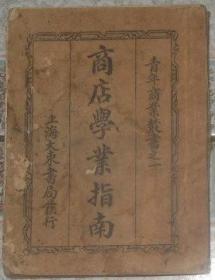 青年商業叢書之一
商店學業指南
上海大東書局發行